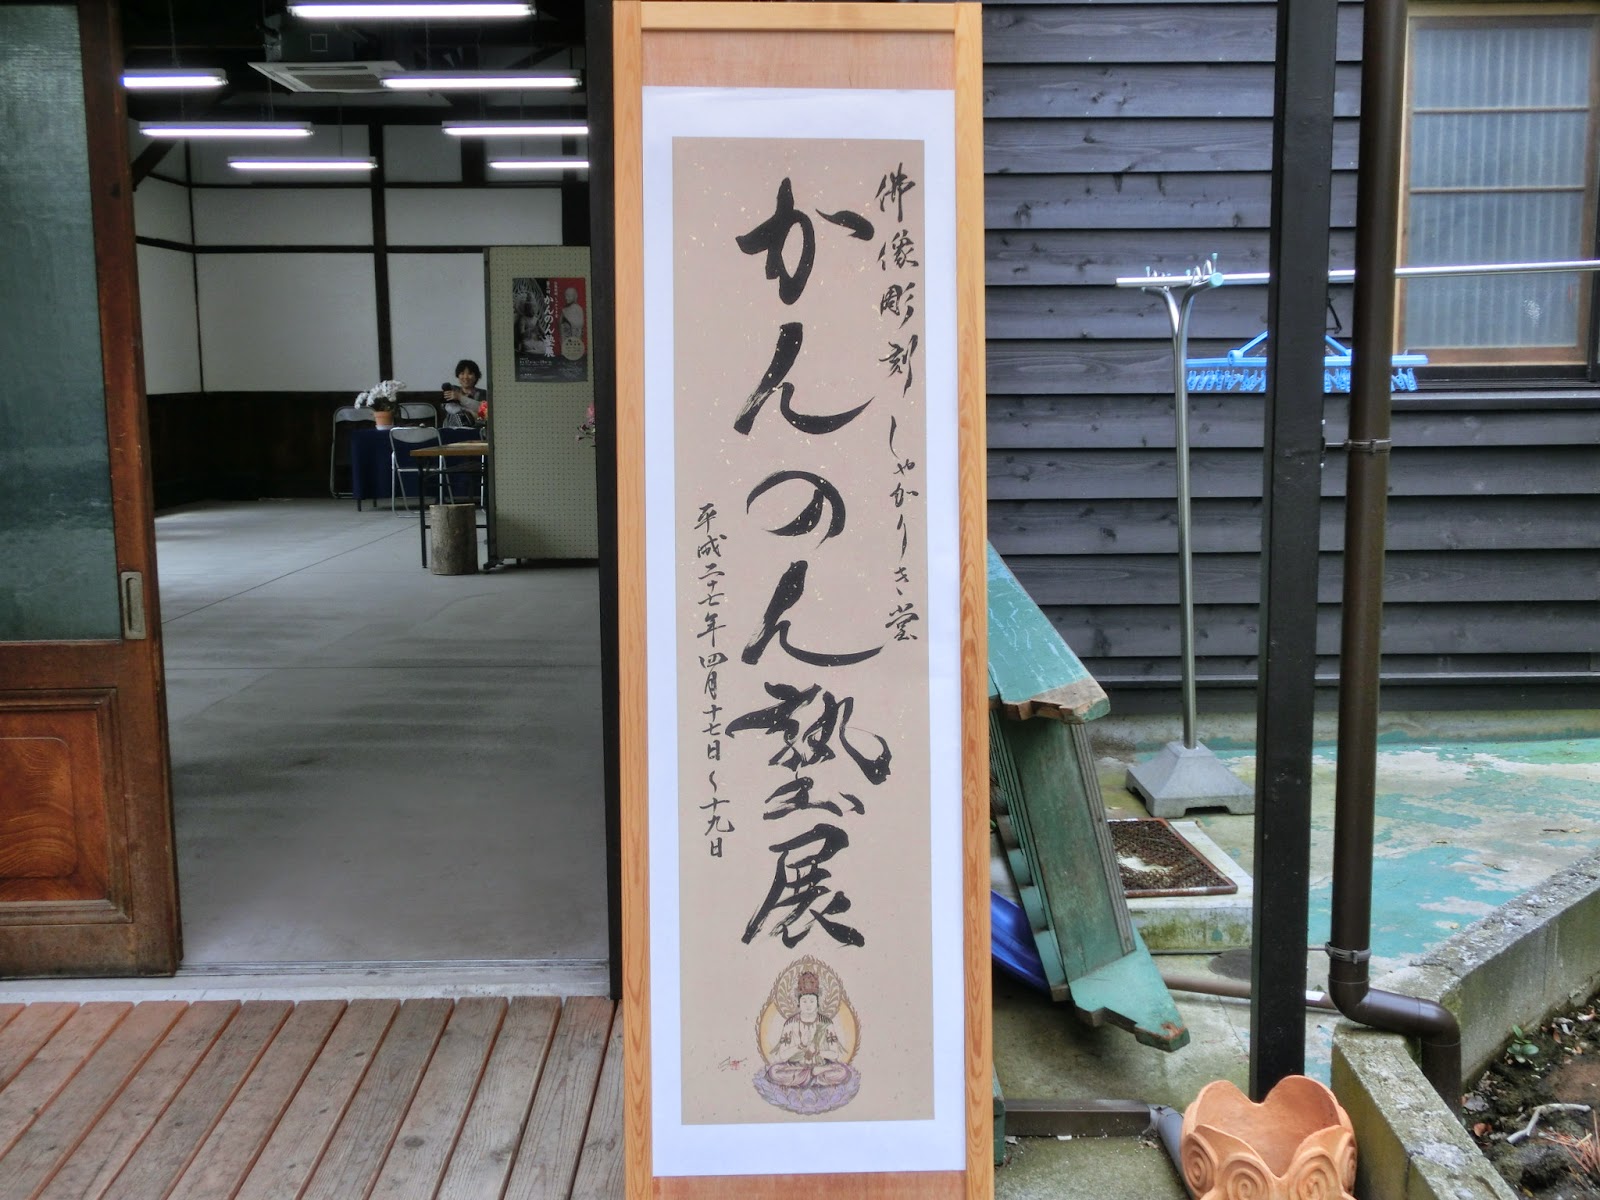 佛像彫刻 しゃかりき堂
かんのん塾展
平成二十七年四月十七日〜十九日
かんのん塾展